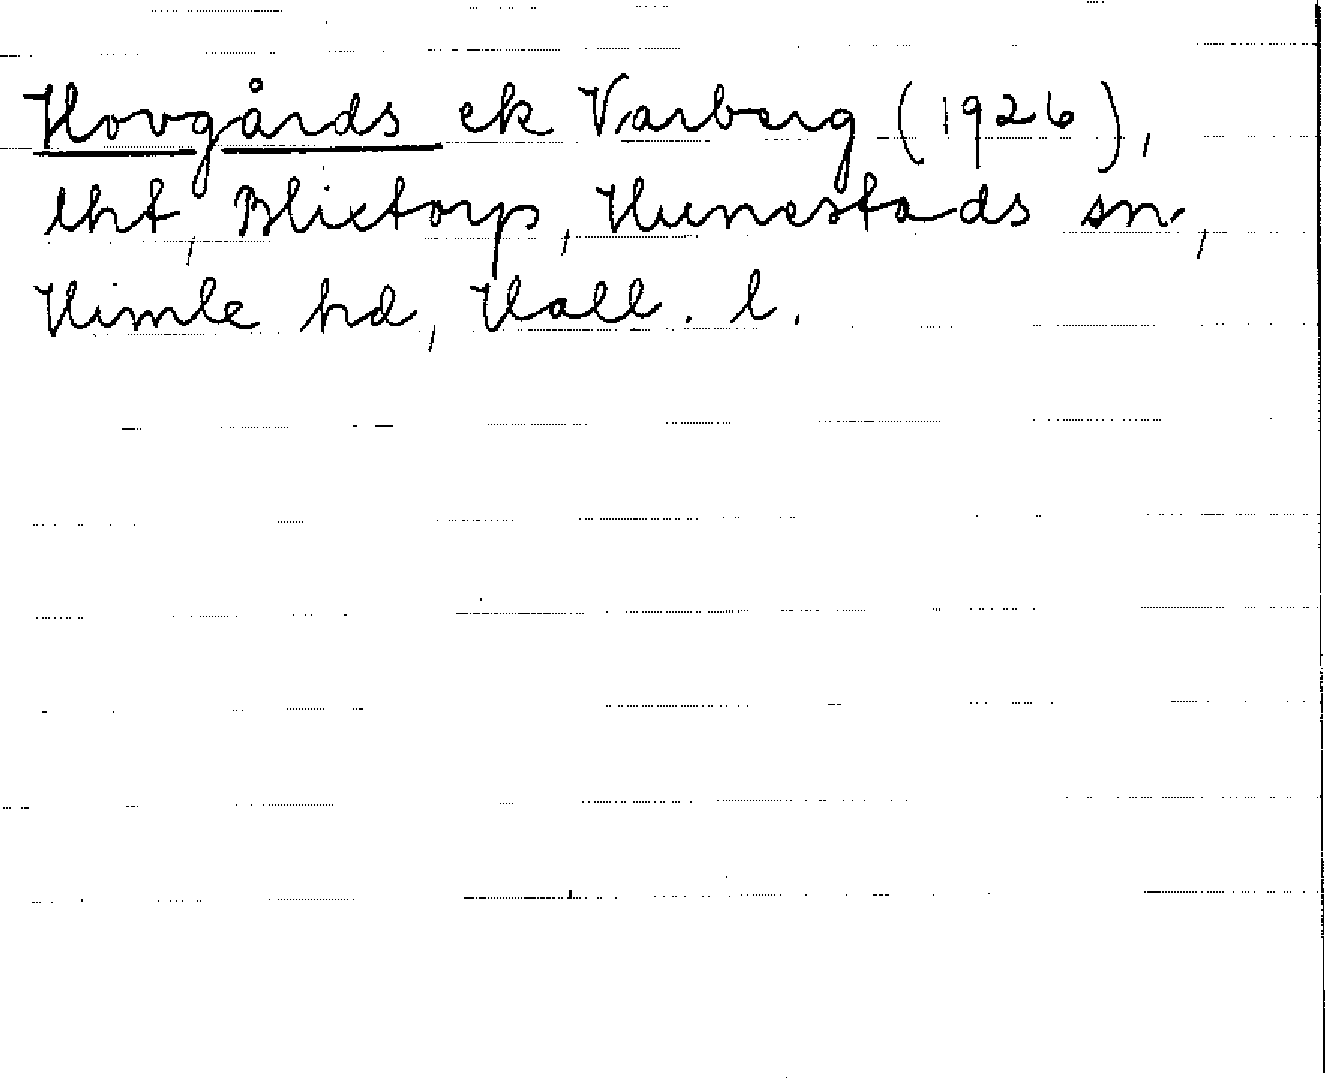 Hovgårds ek Varberg (1926),
lht, Blixtorp, Hunestads sn,
Himle hd, Hall. l.